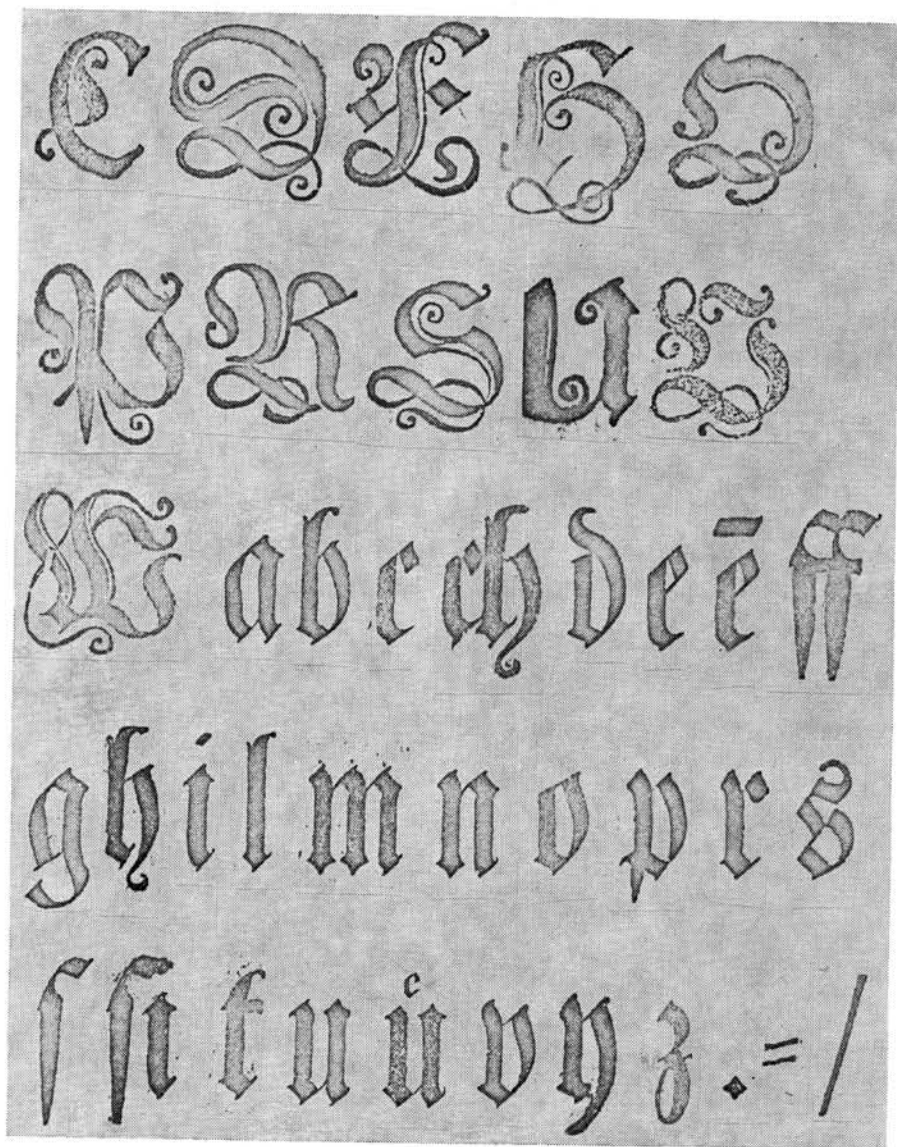 C D E H O
P R S U V
W a b c ch d e ē ff
g h i l m n o p r s
ſ ſi t u uͤ v y z . = /